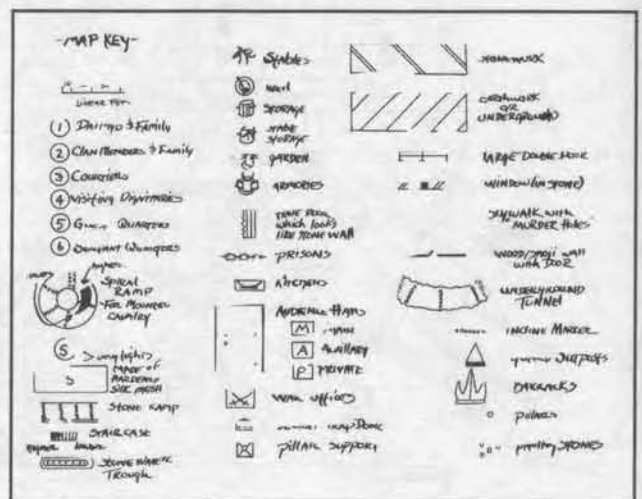 -MAP KEY-
LINEAR FEET
① DAIMYO & FAMILY
② CLAN MEMBERS & FAMILY
③ COURTIERS
④ VISITING DIGNITARIES
⑤ GUEST QUARTERS
⑥ SERVANT QUARTERS
SPIRAL
RAMP
FOR MOUNTED
CAVALRY
S
S
MADE OF
HARDENED
SILK MESH
STONE RAMP
STAIRCASE
STONE WATER
TROUGH
STABLES
WELL
STORAGE
STORAGE
GARDEN
ARMORIES
DOOR
WHICH LOOKS
LIKE STONE WALL
PRISONS
KITCHENS
AUDIENCE HALLS
M MAIN
A AUXILIARY
P PRIVATE
WAR OFFICES
TRAP DOOR
PILLAR SUPPORT
STONEWORK
EARTHWORK
OR
UNDERGROUND
LARGE DOUBLE DOOR
WINDOW (IN STONE)
SKYWALK WITH
"MURDER HOLES"
WOOD/SHOJI WALL
WITH DOOR
UNDERGROUND
TUNNEL
INCLINE MARKER
OUTPOSTS
BARRACKS
PILLARS
STONES